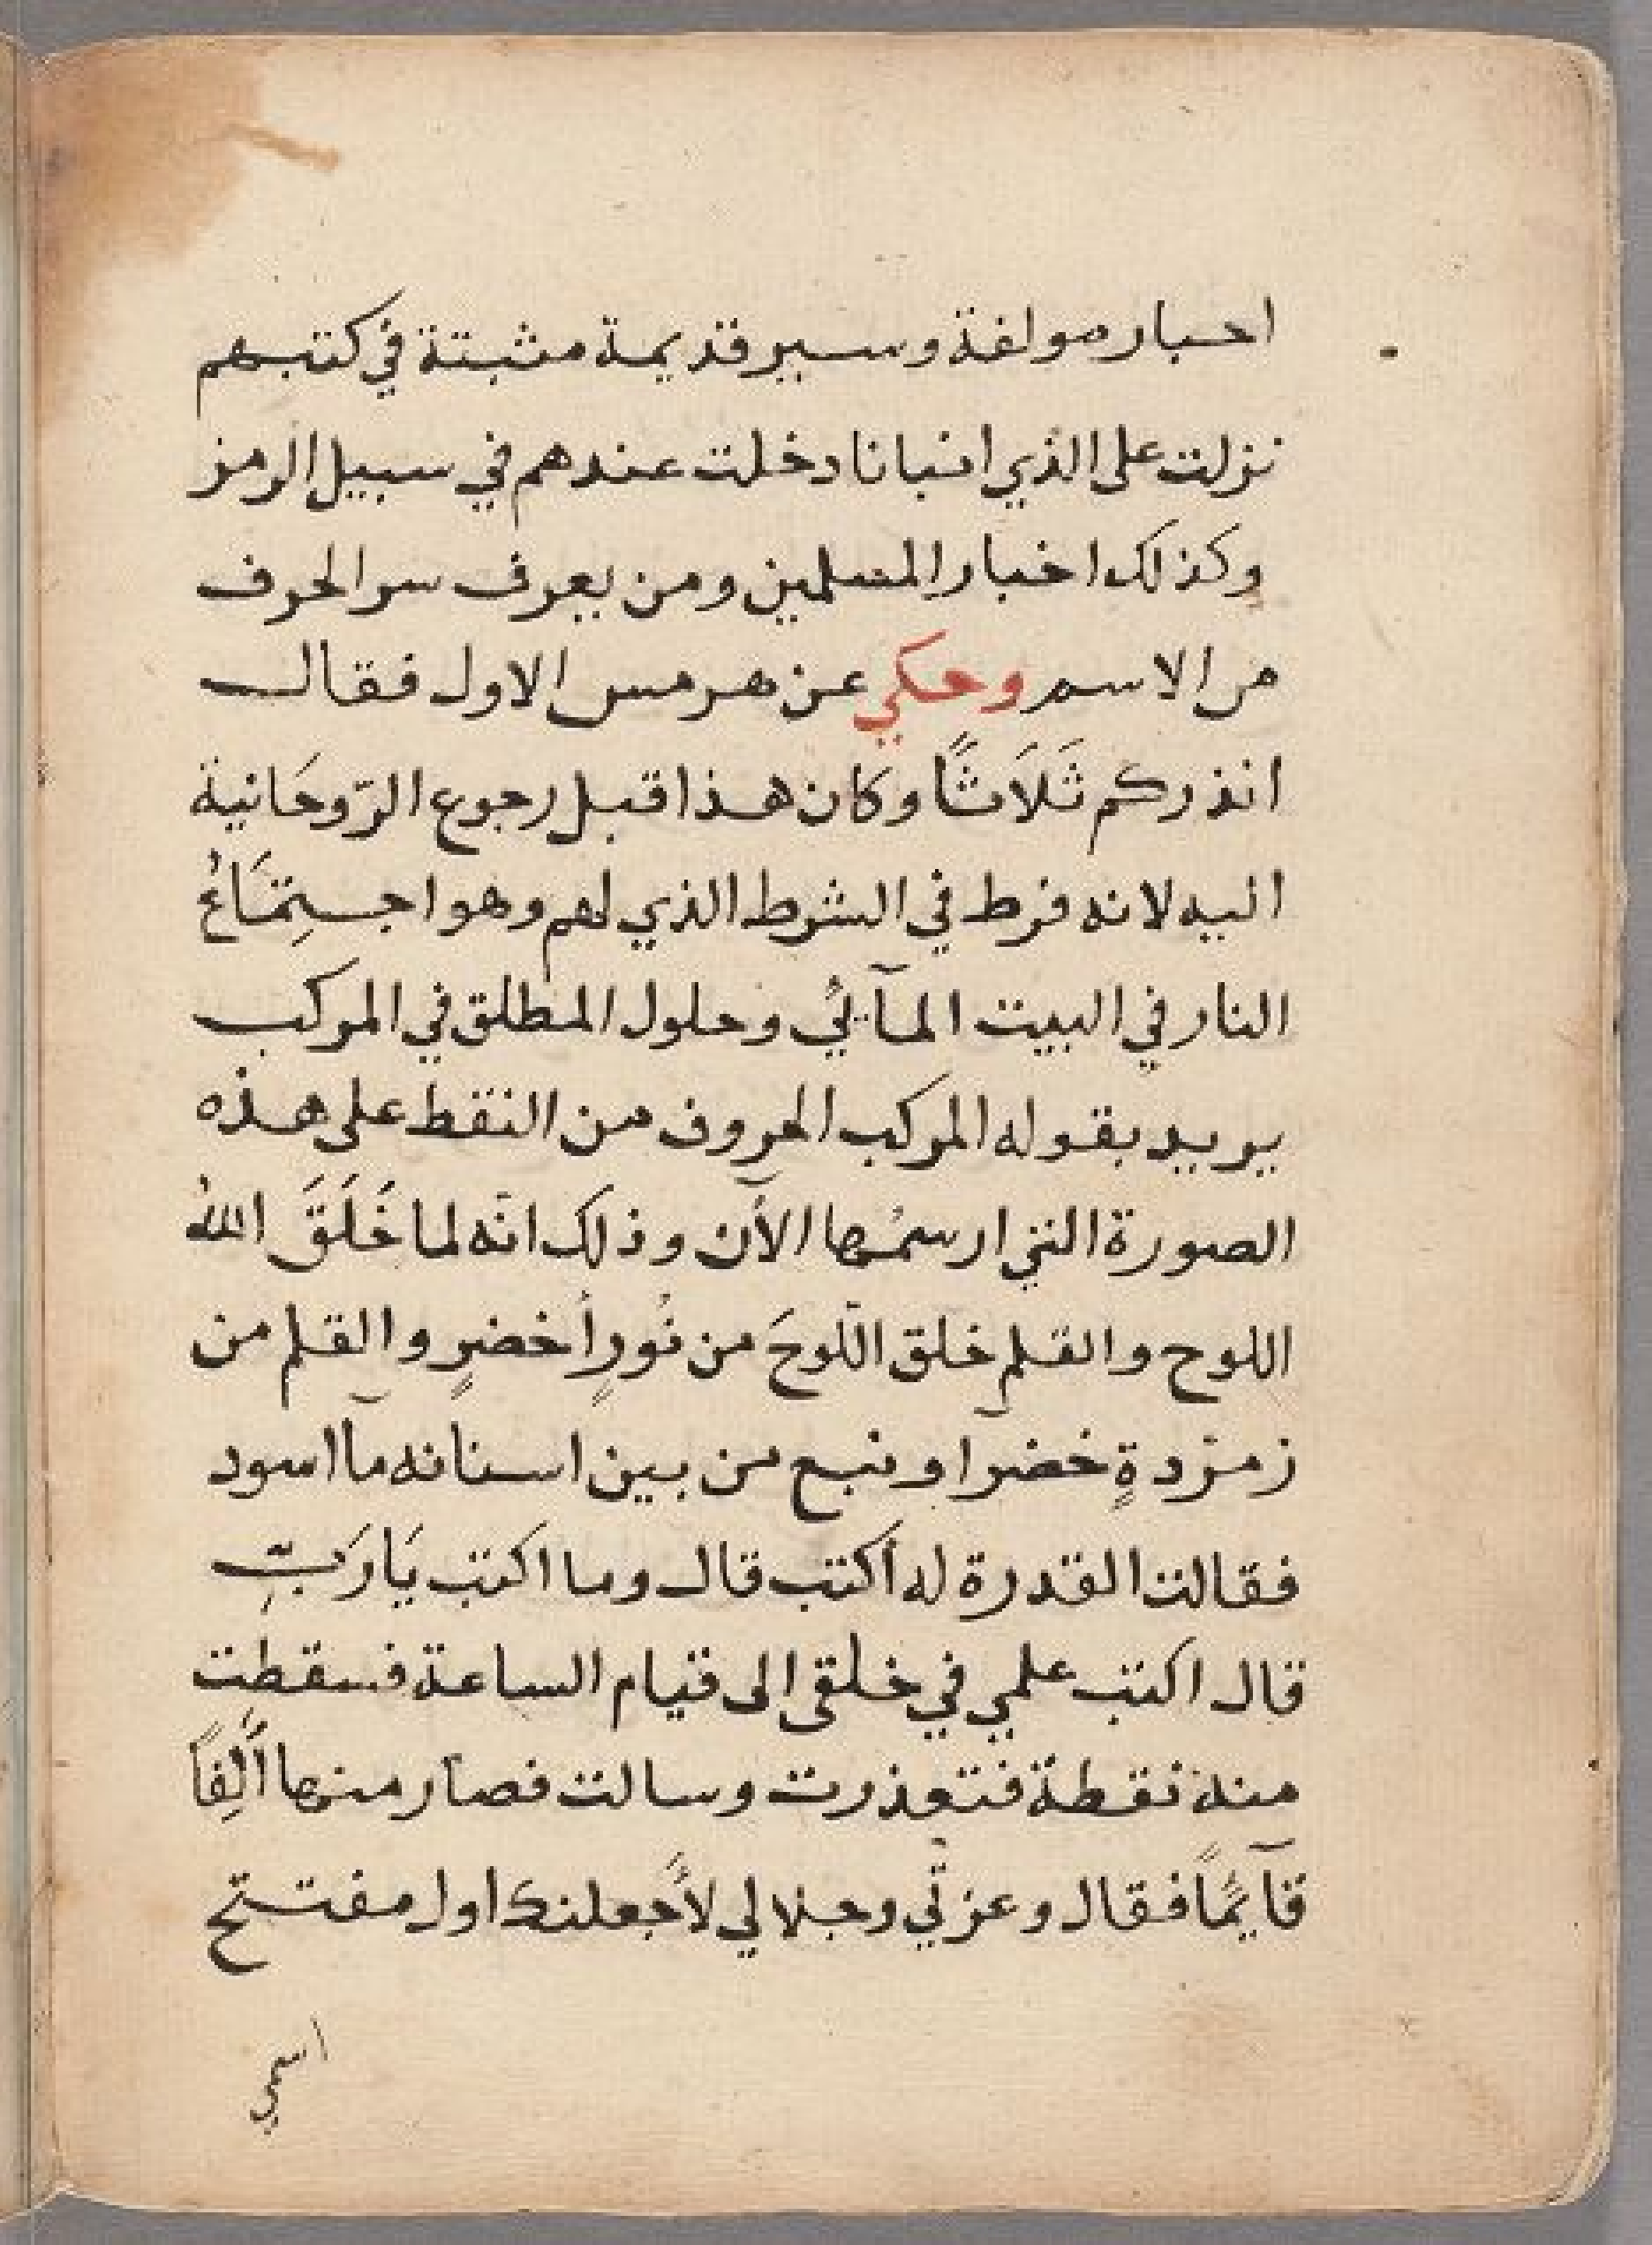 احبار مولفة وسير قديمة مثبتة في كتبهم
نزلت على الذي انبانا دخلت عندهم في سبيل الرمز
وكذلك اخبار المسلمين ومن يعرف سر الحرف
من الاسم وحكي عن هرمس الاول فقال
انذركم ثَلَاثًا وكان هذا قبل رجوع الرّوحَانية
اليه لانه فرط في الشرط الذي لهم وهو اجتِمَاعُ
النار في البيت المآئيُ وحلول المطلق في المركب
يريد بقوله المركب الحروف من النقط على هذه
الصورة التي ارسمُها الآن وذلك انّه لما خَلَقَ اللهُ
اللوح والقلم خلق اللّوحَ من نُورٍ أخضرٍ والقلم من
زمرّدةٍ خضرآ ونبع من بين اسنانه مآ اسود
فقالت القدرة له اكتب قال وما اكتب يَا رَبِّ
قال اكتب علمي في خلقى الى قيام الساعة فسقطت
منه نقطة فتعذرت وسالت فصار منها أَلِفاً
قآيمًا فقال وعزتّي وجلالي لأَجعلنك اول مفتتح
اسمي